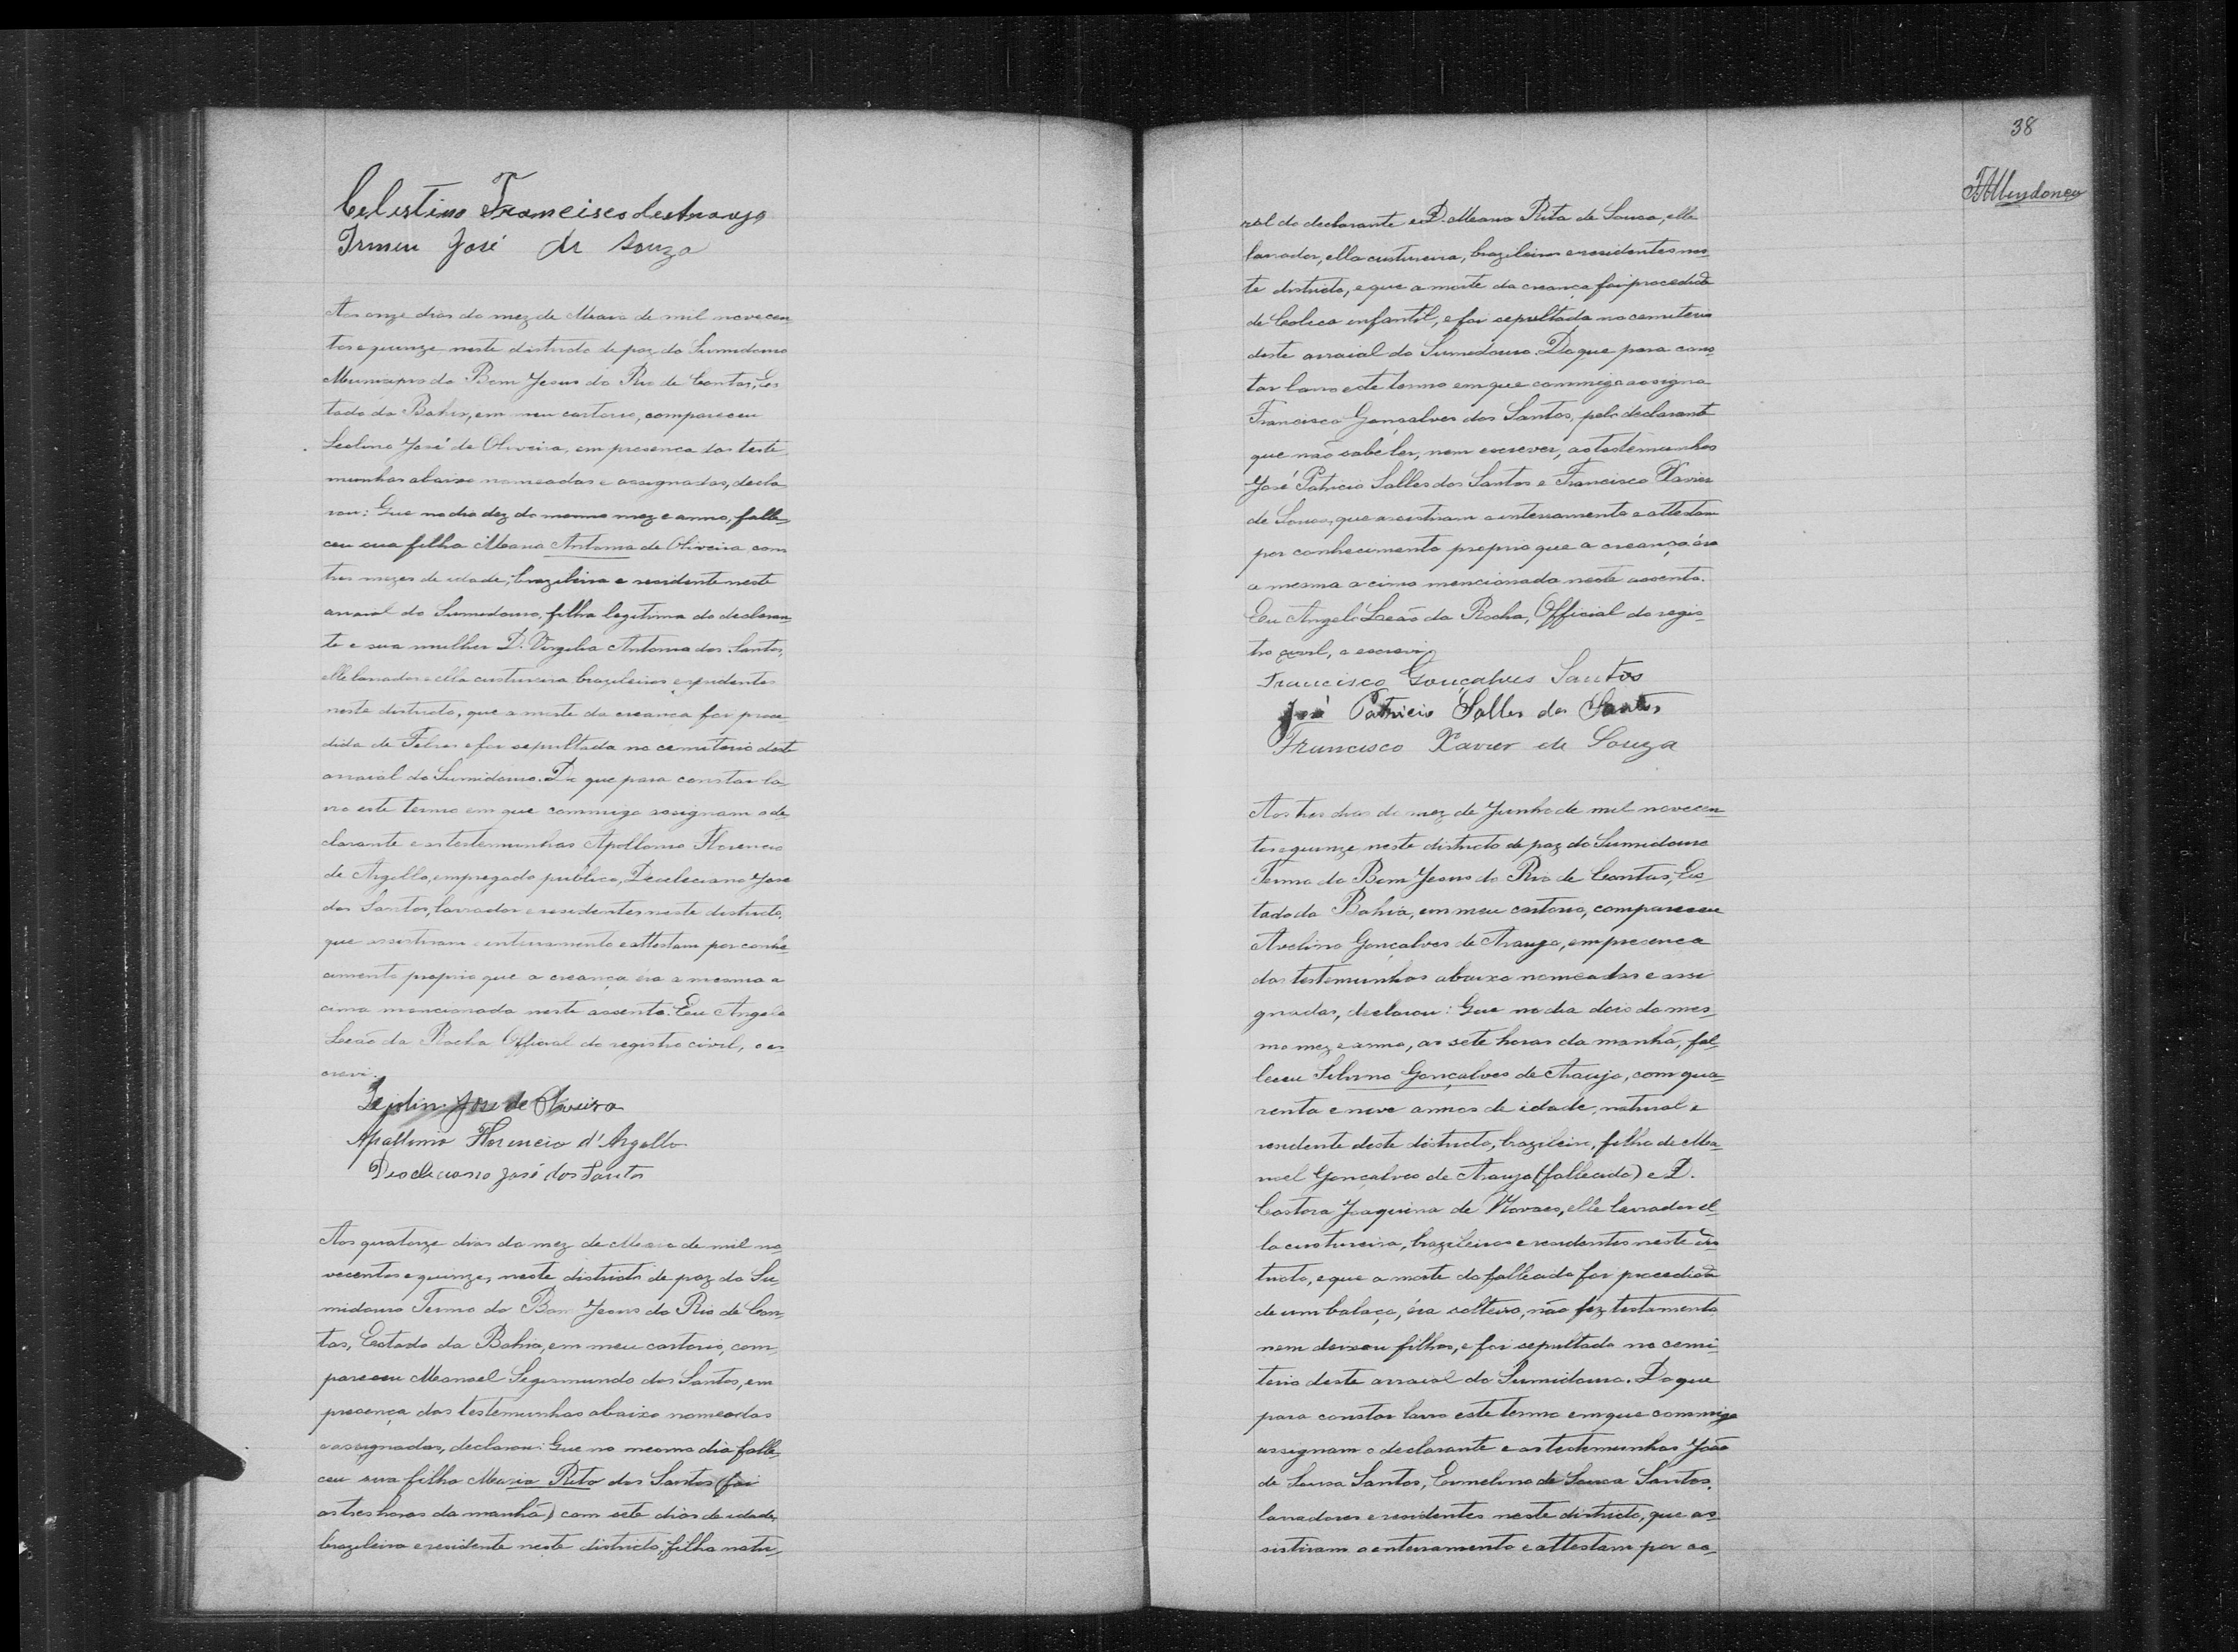 Celestino Francisco de Araujo
Irineu José de Souza
Aos onze dias do mez de Março de mil novecen-
tos e quinze neste districto de paz do Sumidouro
Municipio do Bom Jesus do Rio de Contas, Es-
tado da Bahia, em meu cartorio, compareceu
José de Oliveira, em presença das teste-
munhas abaixo nomeadas e assignadas, decla-
rou: Que no dia dez do mesmo mez e anno, falle-
ceu sua filha Maria Antonia de Oliveira com
tres mezes de idade, brazileira e residente neste
arraial do Sumidouro, filha legitima do declaran-
te e sua mulher D. Virgilia Antonia dos Santos,
elle lavrador e ella custureira brazileiros e residentes
neste districto, que a morte da creança foi proce-
dida de Febres e foi sepultada no cemiterio deste
arraial do Sumidouro. Do que para constar la-
vro este termo em que commigo assignam o de-
clarante e as testemunhas Apollonio Florencio
de Argollo, empregado publico, Deocleciano José
dos Santos, lavrador e residentes neste districto,
que assistiram o enterramento e attestam por conhe-
cimento proprio que a creança éra a mesma a
cima mencionada neste assento. Eu Angelo
Leão da Rocha Official do registro civil, o es-
crevi.
José de Oliveira
Apollonio Florencio d'Argollo
Deocleciano José dos Santos
Aos quatorze dias do mez de de mil no-
vecentos e quinze, neste districto de paz do Su-
midouro Termo do Bom Jesus do Rio de Con-
tas, Estado da Bahia, em meu cartorio, com-
pareceu Manoel Segismundo dos Santos, em
presença das testemunhas abaixo nomeadas
e assignadas, declarou: Que no mesmo dia falle-
ceu sua filha Maria Rita dos Santos (foi
as tres horas da manhã) com sete dias de idade,
brazileira e residente neste districto, filha natu-
38
ral do declarante e D. Maria Rita de Sousa, elle
lavrador, ella custureira, brazileiros e residentes nes-
te districto, e que a morte da creança foi procedida
de Colica infantil, e foi sepultada no cemiterio
deste arraial do Sumidouro. Do que para cons-
tar lavro este termo em que commigo assigna
Francisco Gonçalves dos Santos, pelo declarante
que não sabe ler, nem escrever, as testemunhas
José Patricio Salles dos Santos e Francisco Xavier
de Sousa, que assistiram o enterramento e attestam
por conhecimento proprio que a creança éra
a mesma a cima mencionada neste assento.
Eu Angelo Leão da Rocha, Official do regis-
tro civil, o escrevi.
Francisco Gonçalves Santos
José Patricio Salles dos Santos
Francisco Xavier de Souza
Aos tres dias do mez de Junho de mil novecen-
tos e quinze neste districto de paz do Sumidouro
Termo do Bom Jesus do Rio de Contas, Es-
tado da Bahia, em meu cartorio, compareceu
Avelino Gonçalves de Araujo, em presença
das testemunhas abaixo nomeadas e assi-
gnadas, declarou: Que no dia dois do mes-
mo mez e anno, as sete horas da manhã, fal-
leceu Silvino Gonçalves de Araujo, com qua-
renta e nove annos de idade, natural e
residente deste districto, brazileiro, filho de Ma-
noel Gonçalves de Araujo (fallecido) e D.
Castora Joaquina de Novaes, elle lavrador el-
la custureira, brazileiros e residentes neste dis-
tricto, e que a morte do fallecido foi procedida
de um balaço, éra solteiro, não fez testamento
nem deixou filhos, e foi sepultado no cemi-
terio deste arraial do Sumidouro. Do que
para constar lavro este termo em que commigo
assignam o declarante e as testemunhas João
de Sousa Santos, Ermelino de Sousa Santos,
lavradores e residentes neste districto, que as-
sistiram o enterramento e attestam por co-